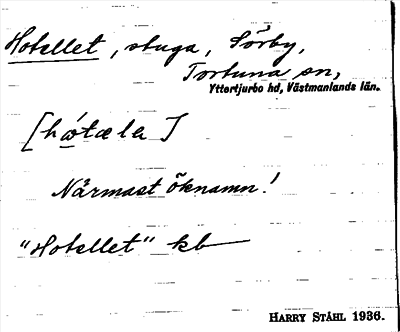 Hotellet, stuga, Sörby,
Tortuna sn,
Yttertjurbo hd, Västmanlands län.
[hótæle]
Närmast öknamn!
"Hotellet" kb
HARRY STÅHL 1936.